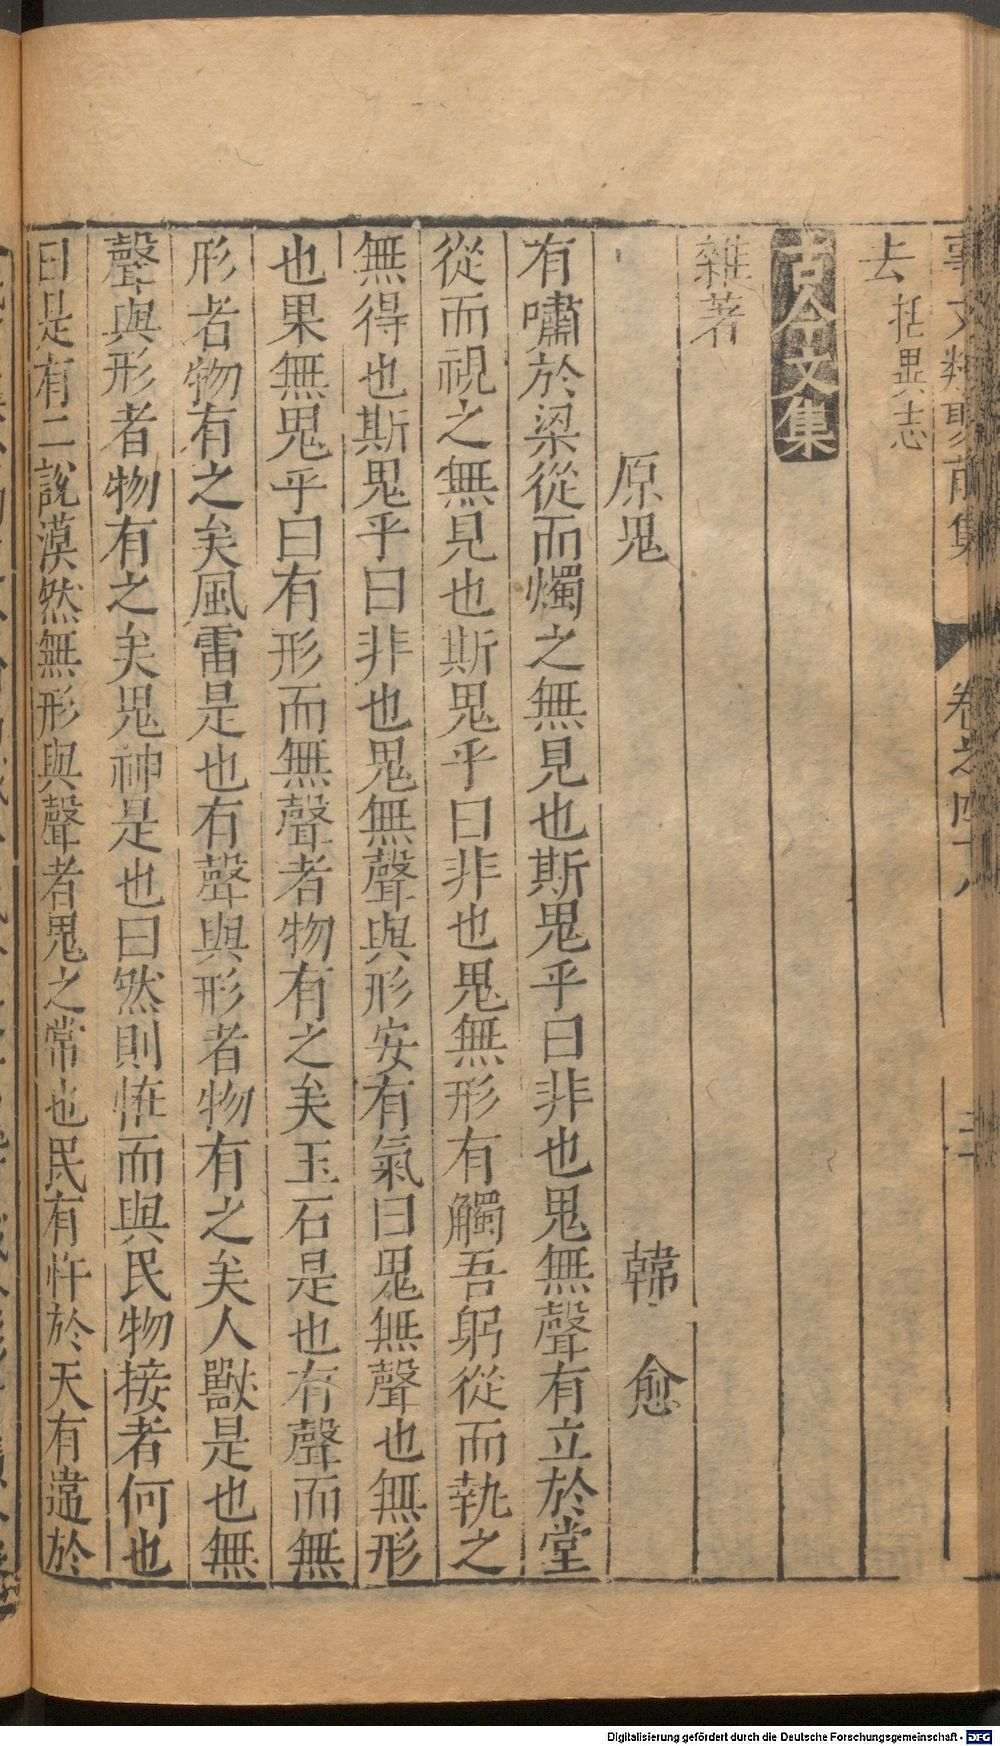 事文類聚前集 卷之四十八
去 括異志
古今文集
雜著
原鬼 韓愈
有嘯於梁從而燭之無見也斯鬼乎曰非也鬼無聲有立於堂
從而視之無見也斯鬼乎曰非也鬼無形有觸吾躬從而執之
無得也斯鬼乎曰非也鬼無聲與形安有氣曰鬼無聲也無形
也果無鬼乎曰有形而無聲者物有之矣玉石是也有聲而無
形者物有之矣風雷是也有聲與形者物有之矣人獸是也無
聲與形者物有之矣鬼神是也曰然則恠而與民物接者何也
曰是有二說漠然無形與聲者鬼之常也民有忤於天有違於
Digitalisierung gefördert durch die Deutsche Forschungsgemeinschaft - DFG